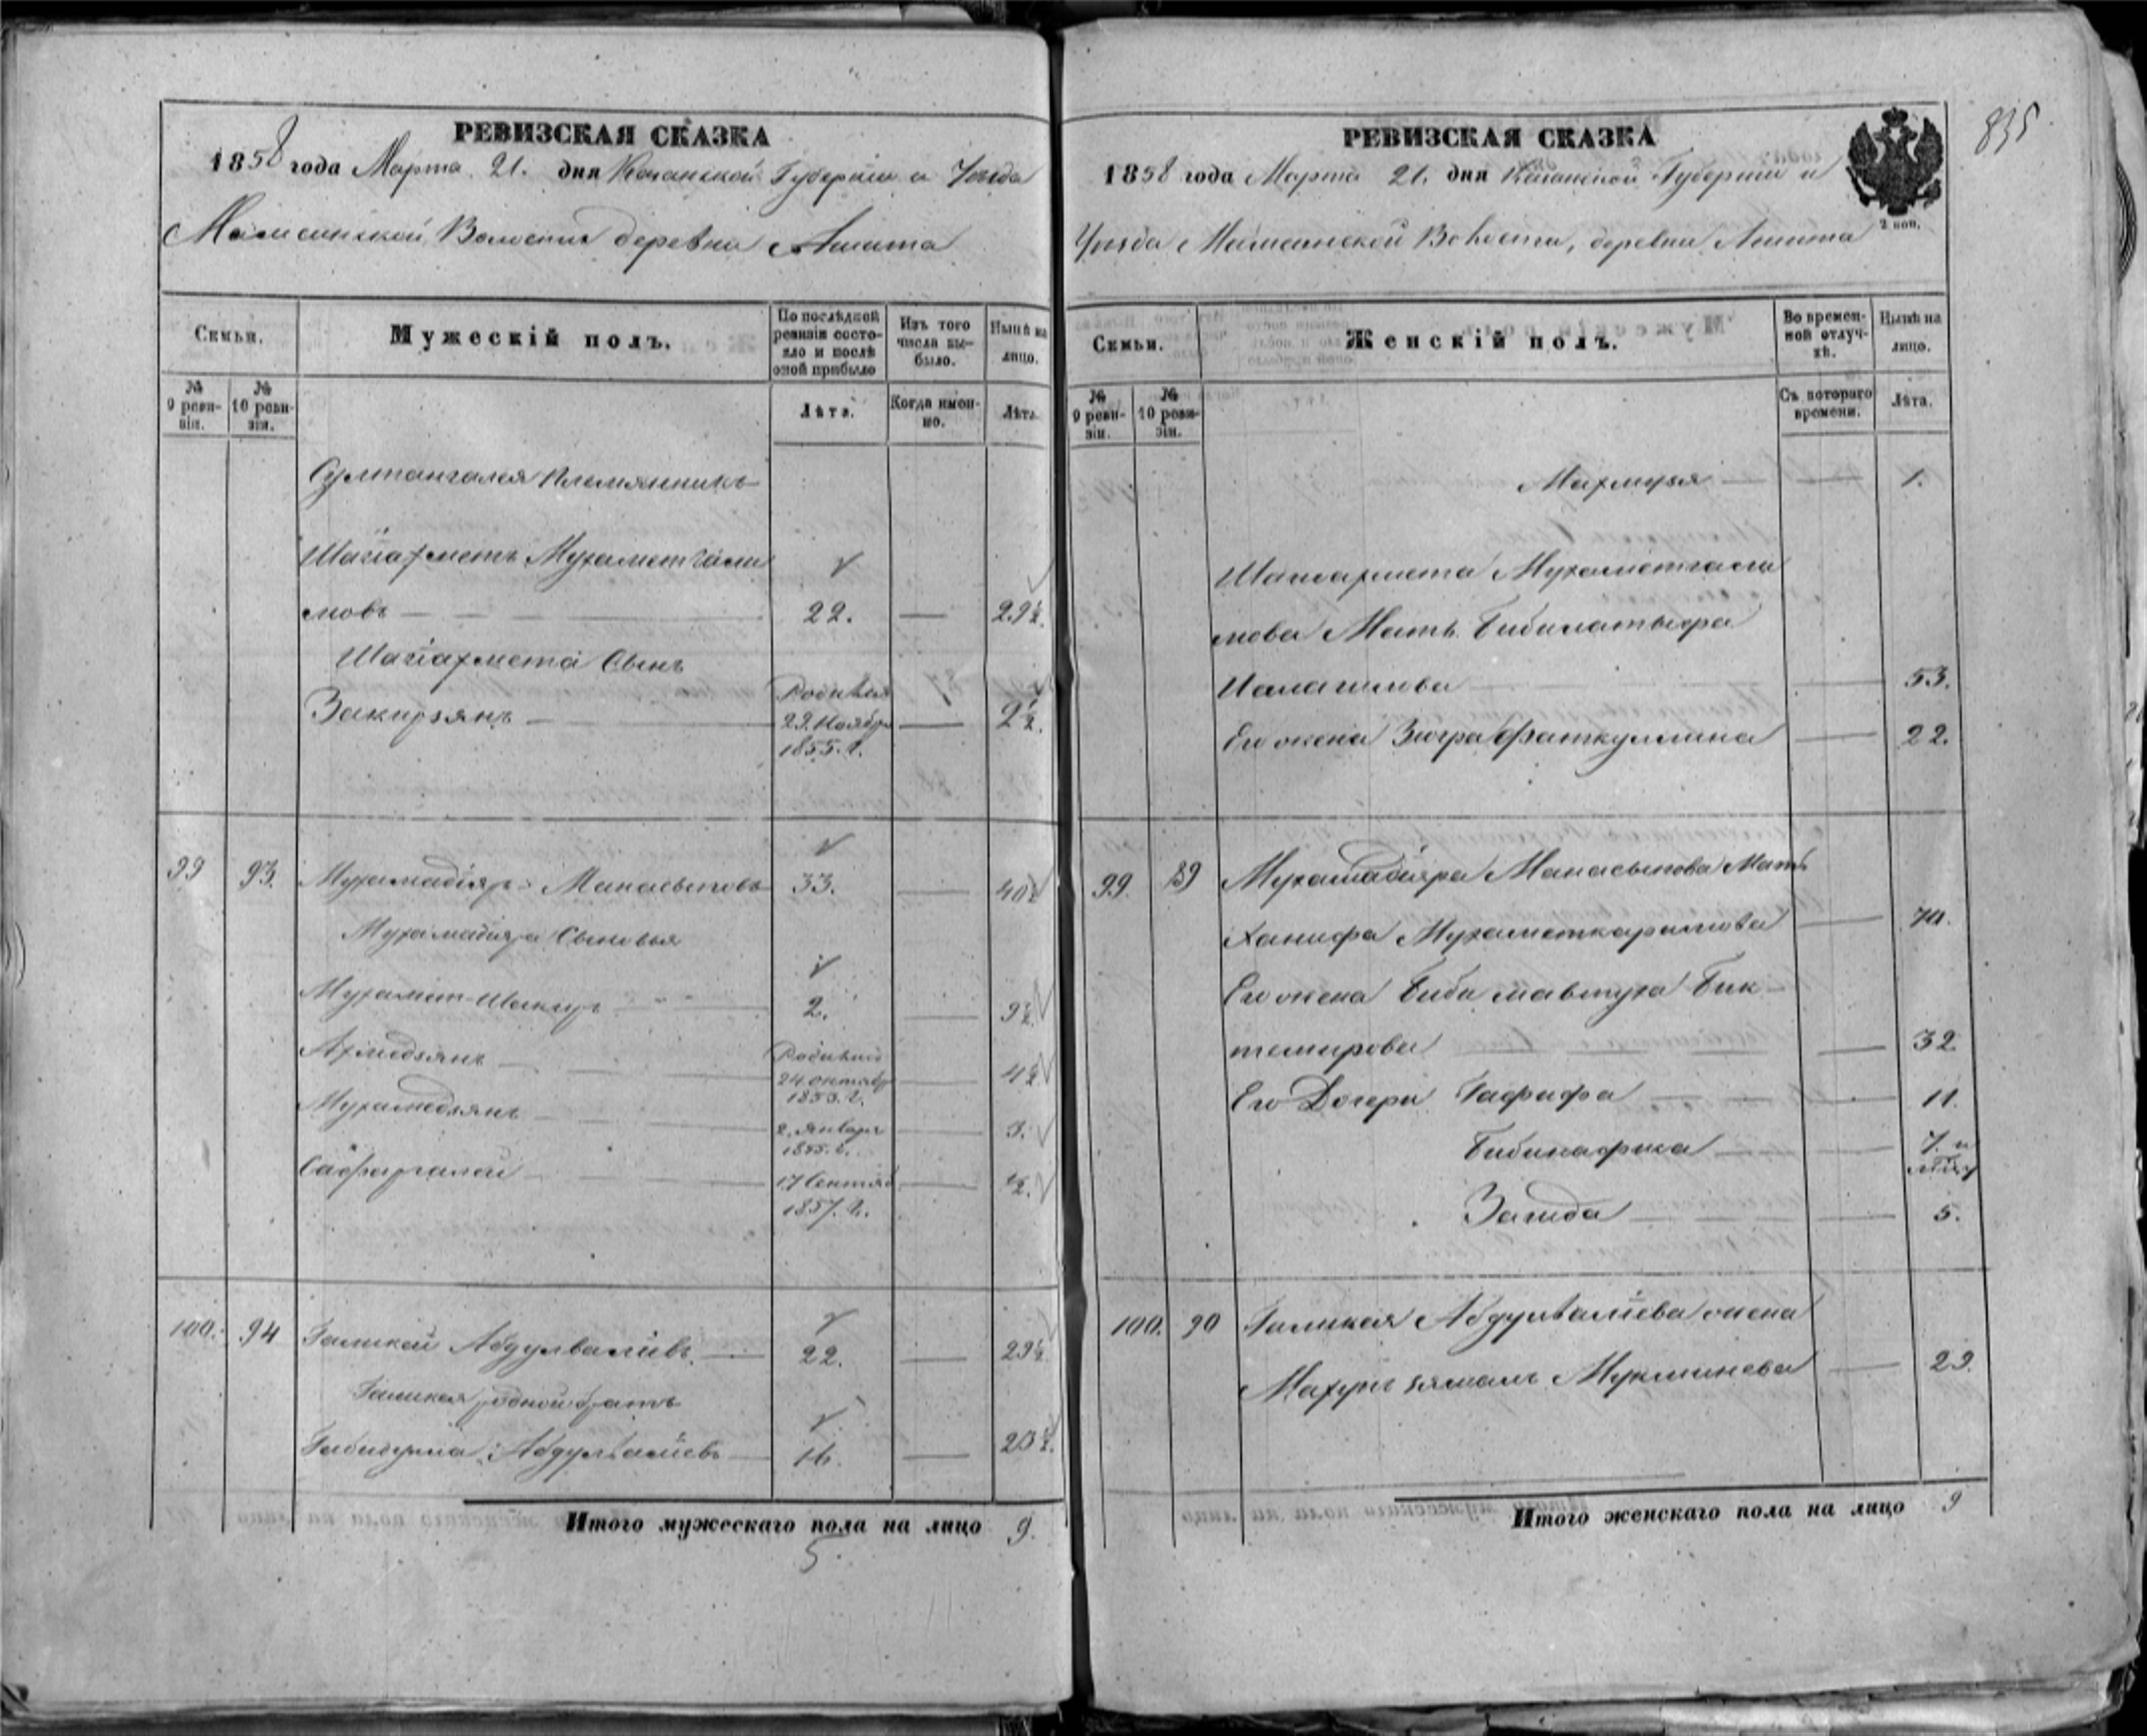 835
РЕВИЗСКАЯ СКАЗКА
1858 года Марта 21. дня Казанской Губернии и Уезда
Мамсинской Волости деревни Ашита
Семьи.
Мужескій полъ.
По послѣдней ревизіи состояло и послѣ оной прибыло
Изъ того числа выбыло.
Нынѣ на лицо.
№ 9 ревизіи.
№ 10 ревизіи.
Лѣта.
Когда именно.
Лѣта.
Султангалея племянникъ
Шагіахметъ Мухаметгали
мовъ — 22. — 29½.
Шагіахмета Сынъ
Закирзянъ — Родился 29. Ноября 1855. г. — 2½.
99 93. Мухамадіяръ Манасыповъ 33. — 40½
Мухамадіяра Сыновья
Мухамет-Шакиръ — 2. — 9½
Ахмедзянъ — Родился 24 октябр 1853. г. — 4½
Мухамедзянъ — 2. Января 1855. г. — 3.
Сафаргалей — 17 Сентяб 1857. г. — ½.
100. 94 Галикей Абдулвалиевъ. — 22. — 29½
Галикея родной братъ
Габидулла Абдулвалиевъ — 16. — 23½.
Итого мужескаго пола на лицо 9.
5.
РЕВИЗСКАЯ СКАЗКА
1858 года Марта 21. дня Казанской Губернии и
2 коп.
Уезда Мамсинской Волости, деревни Ашита
Семьи.
Женскій полъ.
Во временной отлучкѣ.
Нынѣ на лицо.
№ 9 ревизіи.
№ 10 ревизіи.
Съ котораго времени.
Лѣта.
Махмузя — — 1.
Шагиахмета Мухаметгали
мова Мать Бибилатыфа
— 53.
Его жена Зюгра Фаткуллина — 22.
99. 89 Мухамадияра Манасыпова Мать
Ханифа Мухаметкаримова — 70.
Его жена Биби Мавтуха Бик-
темирова — 32.
Его Дочери Гафифа — 11.
Бибинафиса — 7. и
Загида — 5.
100. 90 Галикея Абдулвалиева жена
Махупъ зямалъ Мукминева — 29.
Итого женскаго пола на лицо 9